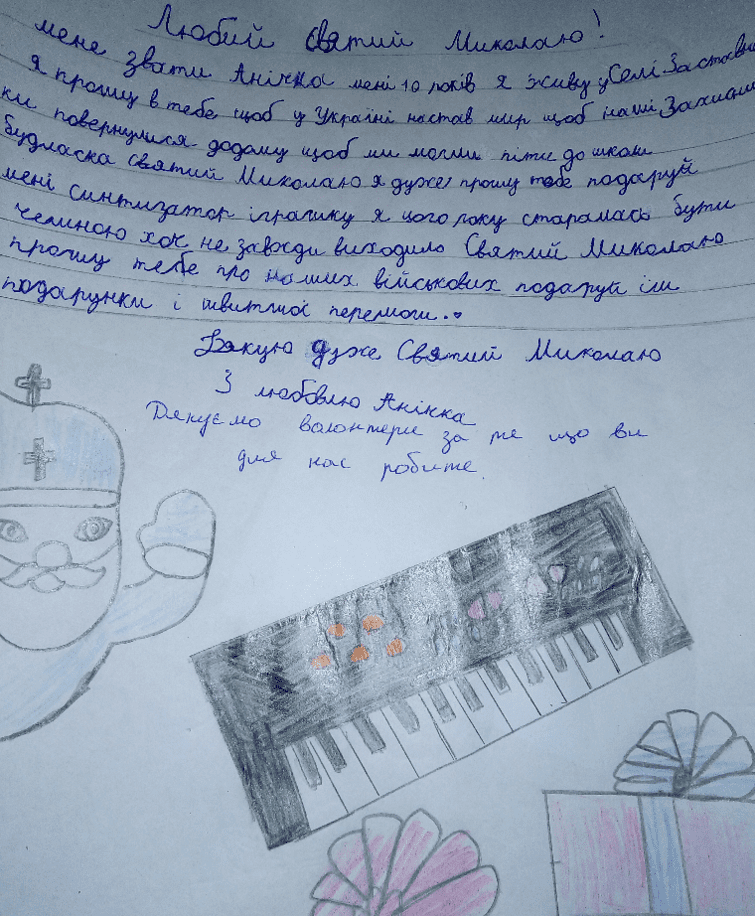 Любий Святий Миколаю!
мене звати Анічка мені 10 років я живу у Селі Заставн
я прошу в тебе щоб у Україні настав мир щоб наші Захисни
ки повернулися додому щоб ми могли піти до школи
будласка святий Миколаю я дуже прошу тебе подаруй
мені синтизатор іграшку я цього року старалась бути
чемною хоч не завжди виходило Святий Миколаю
прошу тебе про наших військових подаруй їм
подарунки і швитшої перемоги.
Дякую дуже Святий Миколаю
З любовлю Анічка
Дякуємо волонтери за те що ви
для нас робите.